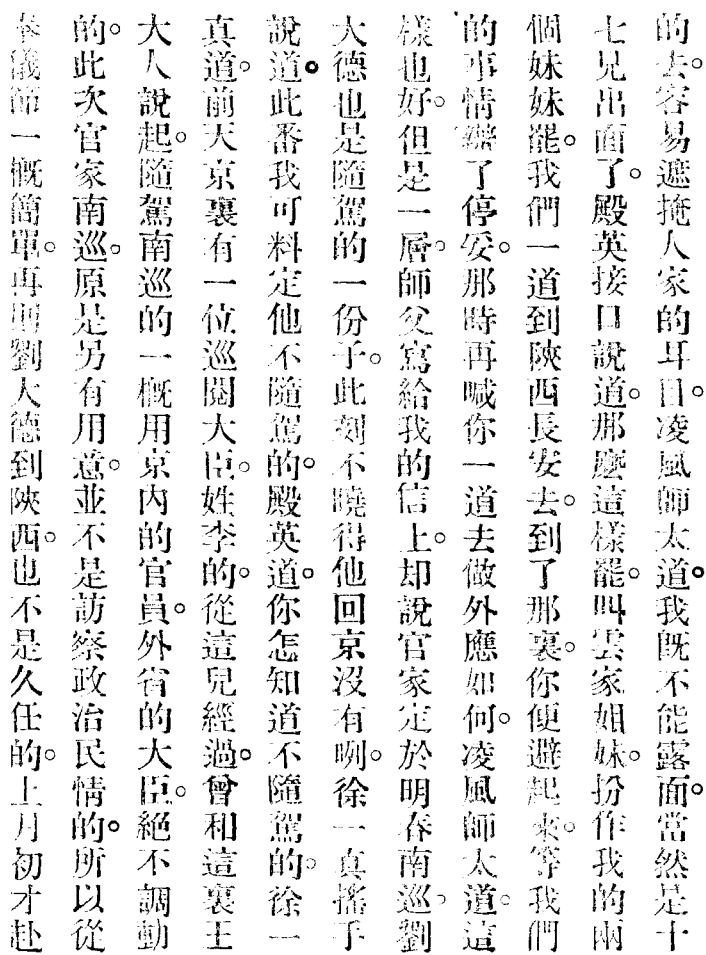 的去。容易遮掩人家的耳目。凌風師太道。我既不能露面。當然是十
七兄出面了。殿英接口說道。那麽這樣罷。叫雲家姐妹。扮作我的兩
個妹妹罷。我們一道到陝西長安去。到了那裏。你便避起來。等我們
的事情辦了停妥。那時再喊你一道去做外應如何。凌風師太道。這
樣也好。但是一層。師父寫給我的信上。却說官家定於明春南巡。劉
大德也是隨駕的一份子。此刻不曉得他回京沒有咧。徐一真搖手
說道。此番我可料定他不隨駕的。殿英道。你怎知道不隨駕的。徐一
真道。前天京裏有一位巡閱大臣。姓李的。從這兒經過。曾和這裏王
大人說起。隨駕南巡的一概用京內的官員。外省的大臣。絕不調動
的。此次官家南巡。原是另有用意。並不是訪察政治民情的。所以從
奉儀節一概簡單。再則劉大德到陝西。也不是久任的。上月初才赴